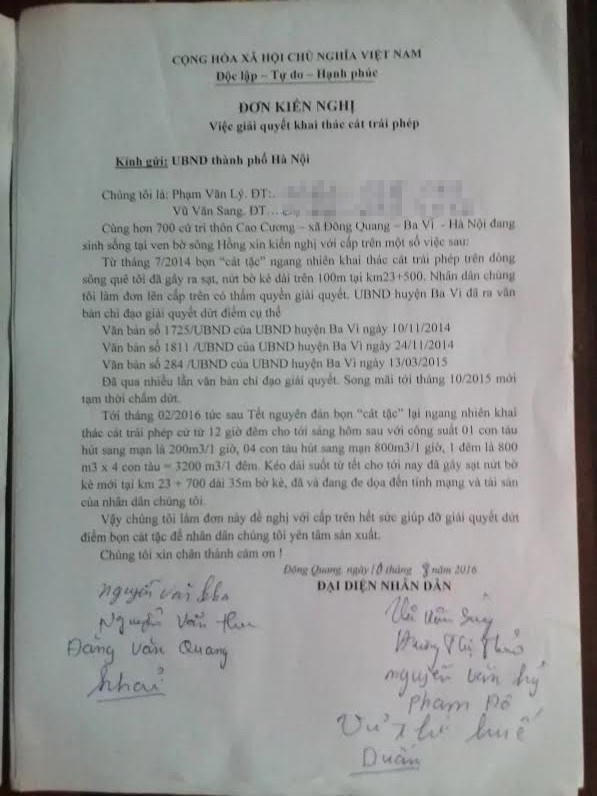 CỘNG HÒA XÃ HỘI CHỦ NGHĨA VIỆT NAM
Độc lập – Tự do – Hạnh phúc
ĐƠN KIẾN NGHỊ
Việc giải quyết khai thác cát trái phép
Kính gửi: UBND thành phố Hà Nội
Chúng tôi là: Phạm Văn Lý. ĐT:
Vũ Văn Sang. ĐT
Cùng hơn 700 cử tri thôn Cao Cương – xã Đông Quang – Ba Vì - Hà Nội đang
sinh sống tại ven bờ sông Hồng xin kiến nghị với cấp trên một số việc sau:
Từ tháng 7/2014 bọn “cát tặc” ngang nhiên khai thác cát trái phép trên dòng
sông quê tôi đã gây ra sạt, nứt bờ kè dài trên 100m tại km23+500. Nhân dân chúng
tôi làm đơn lên cấp trên có thẩm quyền giải quyết. UBND huyện Ba Vì đã ra văn
bản chỉ đạo giải quyết dứt điểm cụ thể
Văn bản số 1725/UBND của UBND huyện Ba Vì ngày 10/11/2014
Văn bản số 1811 /UBND của UBND huyện Ba Vì ngày 24/11/2014
Văn bản số 284 /UBND của UBND huyện Ba Vì ngày 13/03/2015
Đã qua nhiều lần văn bản chỉ đạo giải quyết. Song mãi tới tháng 10/2015 mới
tạm thời chấm dứt.
Tới tháng 02/2016 tức sau Tết nguyên đán bọn “cát tặc” lại ngang nhiên khai
thác cát trái phép cứ từ 12 giờ đêm cho tới sáng hôm sau với công suất 01 con tàu
hút sang mạn là 200m3/1 giờ, 04 con tàu hút sang mạn 800m3/1 giờ, 1 đêm là 800
m3 x 4 con tàu = 3200 m3/1 đêm. Kéo dài suốt từ tết cho tới nay đã gây sạt nứt bờ
kè mới tại km 23 + 700 dài 35m bờ kè, đã và đang đe dọa đến tính mạng và tài sản
của nhân dân chúng tôi.
Vậy chúng tôi làm đơn này đề nghị với cấp trên hết sức giúp đỡ giải quyết dứt
điểm bọn cát tặc để nhân dân chúng tôi yên tâm sản xuất.
Chúng tôi xin chân thành cảm ơn !
Đông Quang, ngày 10 tháng 3 năm 2016
ĐẠI DIỆN NHÂN DÂN
Nguyễn Văn
Nguyễn Văn
Đặng Văn Quang
Khải
Thị
Nguyễn Văn
Phạm Đô
Vũ Thị Huế
Duẩn